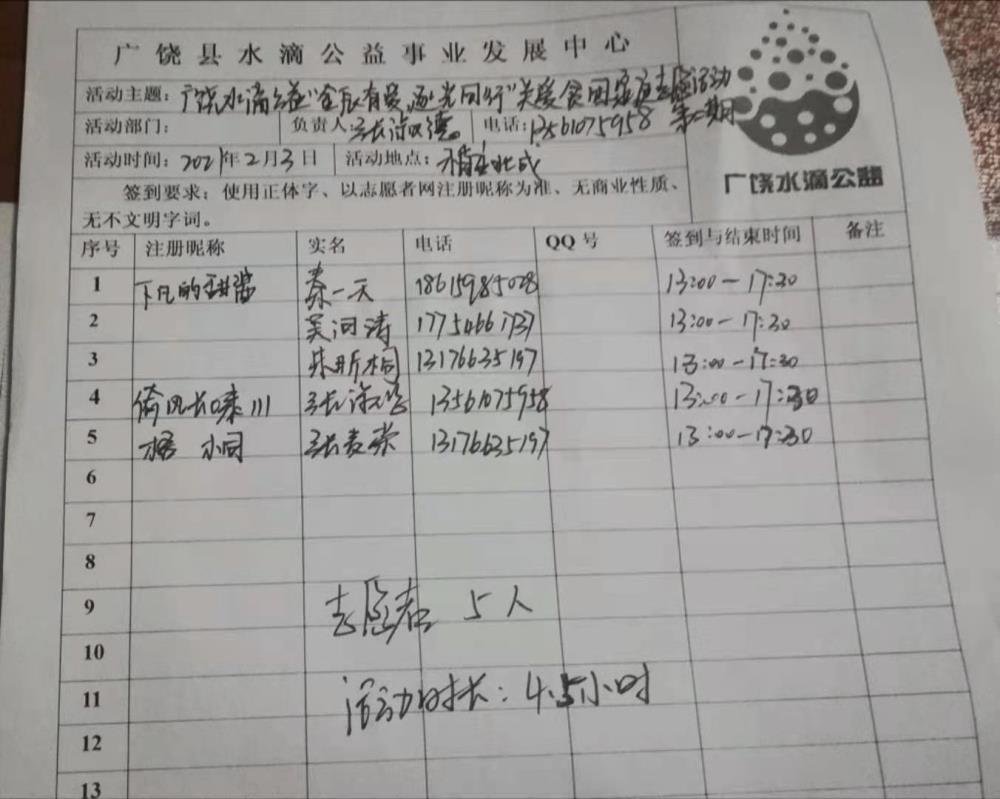 广饶县水滴公益事业发展中心
活动主题：广饶水滴公益"有爱 逐光同行"关爱 困 志愿活动
第 期
活动部门： 负责人：张淑德 电话：13561075958
活动时间：2021年2月3日 活动地点：
签到要求：使用正体字、以志愿者网注册昵称为准、无商业性质、
无不文明字词。
广饶水滴公益
序号 注册昵称 实名 电话 QQ号 签到与结束时间 备注
1 下凡的 秦一天 18615985028 13:00－17:30
2 吴润涛 17754661737 13:00－17:30
3 朱昕桐 13176635197 13:00－17:30
4 倚风长啸川 张淑 13561075958 13:00－17:30
5 张 13176635197 13:00－17:30
6
7
8
9 志愿者 5人
10
11 活动时长：4.5小时
12
13